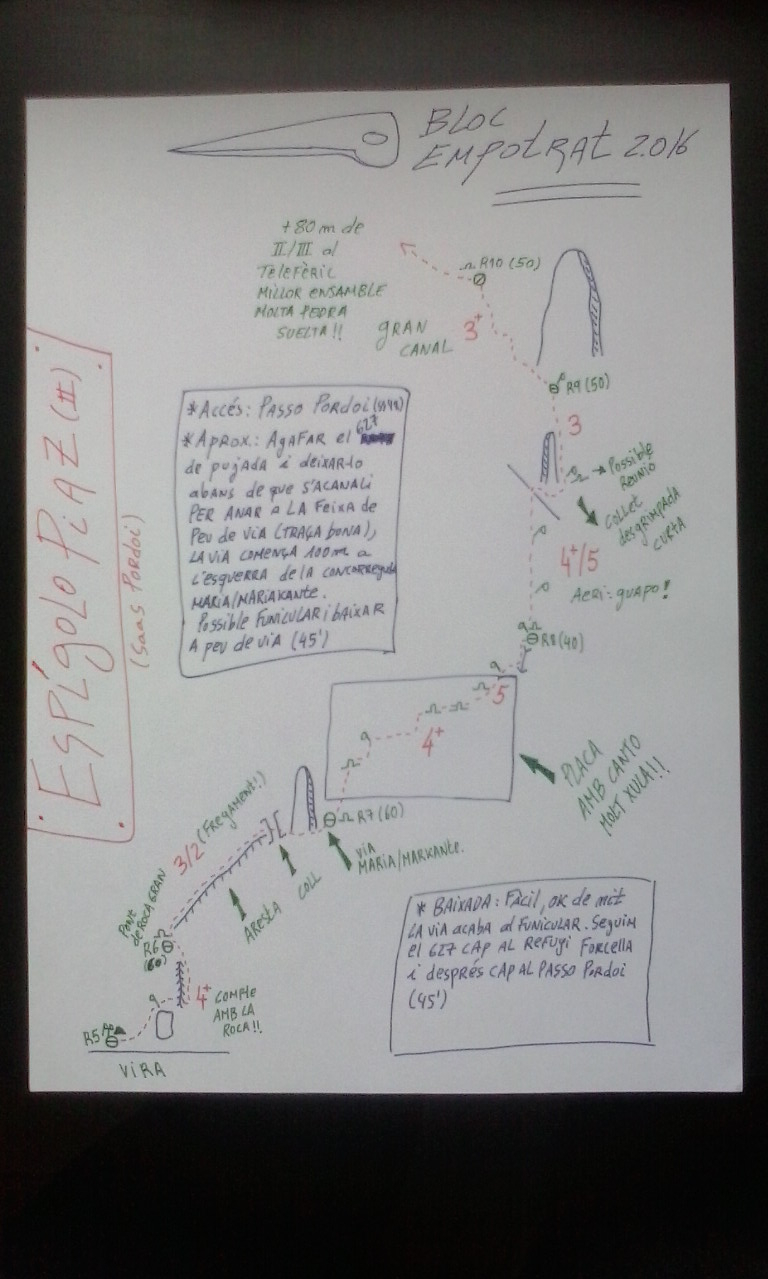 BLOC
EMPOTRAT 2.016
+80 m de
II/III al
TELEFÈRIC
MILLOR ENSAMBLE
MOLTA PEDRA
SUELTA!!
R10 (50)
3+
GRAN
CANAL
R9 (50)
3
→ Possible
REUNIÓ
COLLET
desgrimpada
CURTA
4+/5
AERI i guapo!
R8 (40)
ESPÍGOLO PIAZ (II)
(Saas Pordoi)
* Accés: PASSO PORDOI
* APROX.: AGAFAR el 627
de pujada i deixar-lo
abans de que S'ACANALI
PER ANAR a LA Feixa de
Peu de VIA (TRAÇA bona),
LA VIA COMENÇA 100m a
L'esquerra de la CONCORREGUDA
MARIA/MARIAKANTE.
Possible FUNICULAR i BAIXAR
A peu de VIA (45')
5
4+
PLACA
AMB CANTO
MOLT XULA!!!
R7 (60)
VIA
MARIA/MARKANTE.
COLL
ARESTA
3/2 (FREGAMENT!)
PONT
de ROCA GRAN
R6
4+
COMPTE
AMB LA
ROCA!!
R5
VIRA
* BAIXADA: Fàcil, ok de nit
LA VIA ACABA al FUNICULAR. Seguim
el 627 CAP AL REFUGI FORCELLA
i després CAP AL PASSO PORDOI
(45')